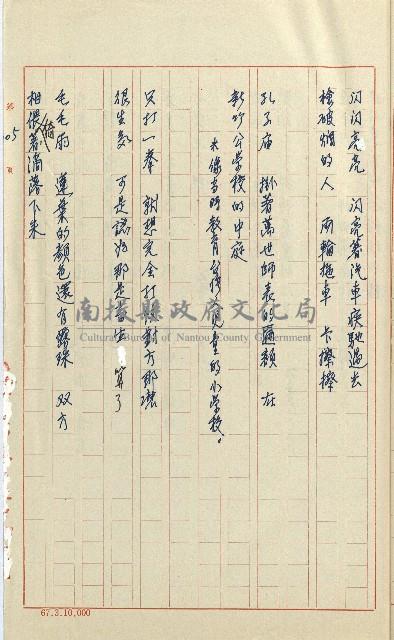 閃閃亮亮 閃亮著汽車疾馳過去
撿破爛的人 兩輪拖車 卡擦擦
孔子廟 掛著萬世師表的匾額 在
新竹公學校的中庭
大像當時教育台灣兒童的小學校。
只打一拳 就想完全打倒對方那樣
很生氣 可是認為那是人生 算了
毛毛雨 蓮葉的顏色還有露珠 双方
相偎著滴落下來
05
頁
南投縣政府文化局
Cultural Bureau of Nantou County Government
67.3.10,000